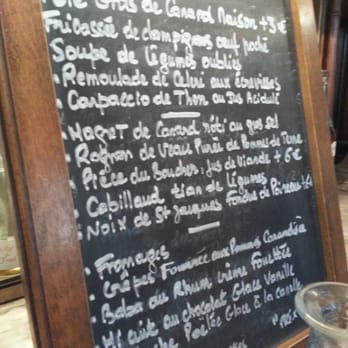 Foie Gras de Canard Maison +3€
Fricassée de champignons oeuf poché
Soupe de légumes oubliés
• Remoulade de Céleri aux écrevisses
• Carpaccio de Thon au Jus Acidulé
• Magret de Canard rôti au gros sel
• Rognon de Veau Purée de Pommes de Terre
• Pièce du Boucher : jus de Viande + 6€
• Cabillaud tian de légumes
• Noix de St Jacques fondue de Poireaux +4
• Fromages
• Crêpes Fourrée aux Pommes Caramélisée
• Baba au Rhum crème Fouettée
• Mi cuit au chocolat Glace Vanille
Poêlée Glace à la canelle